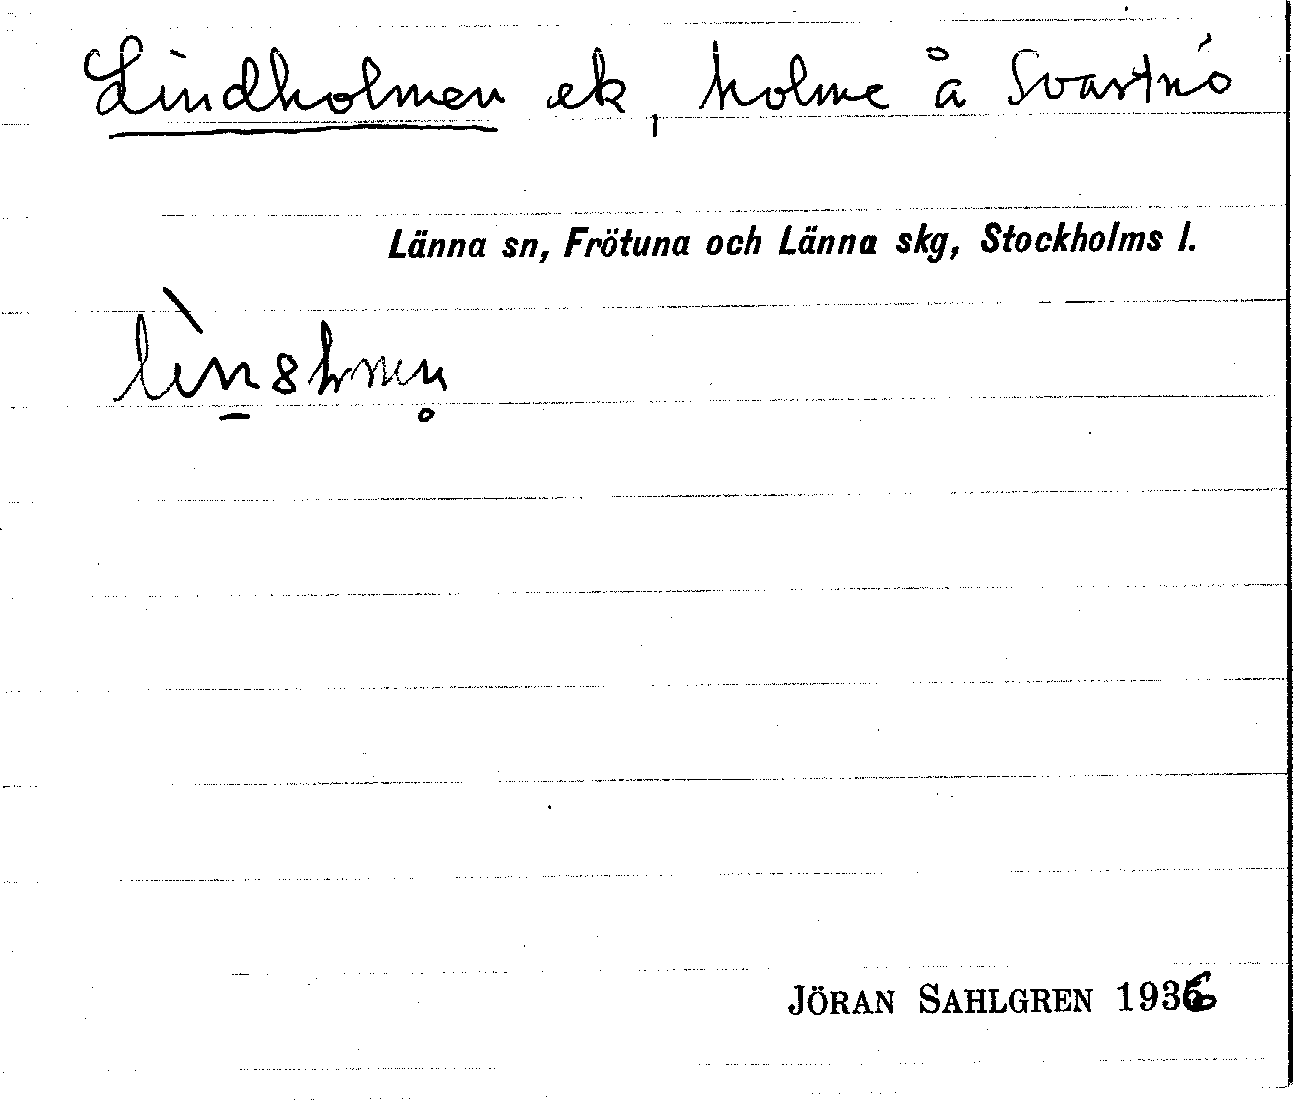 Lindholmen ek, holme å Svartnö
Länna sn, Frötuna och Länna skg, Stockholms l.
JÖRAN SAHLGREN 1936